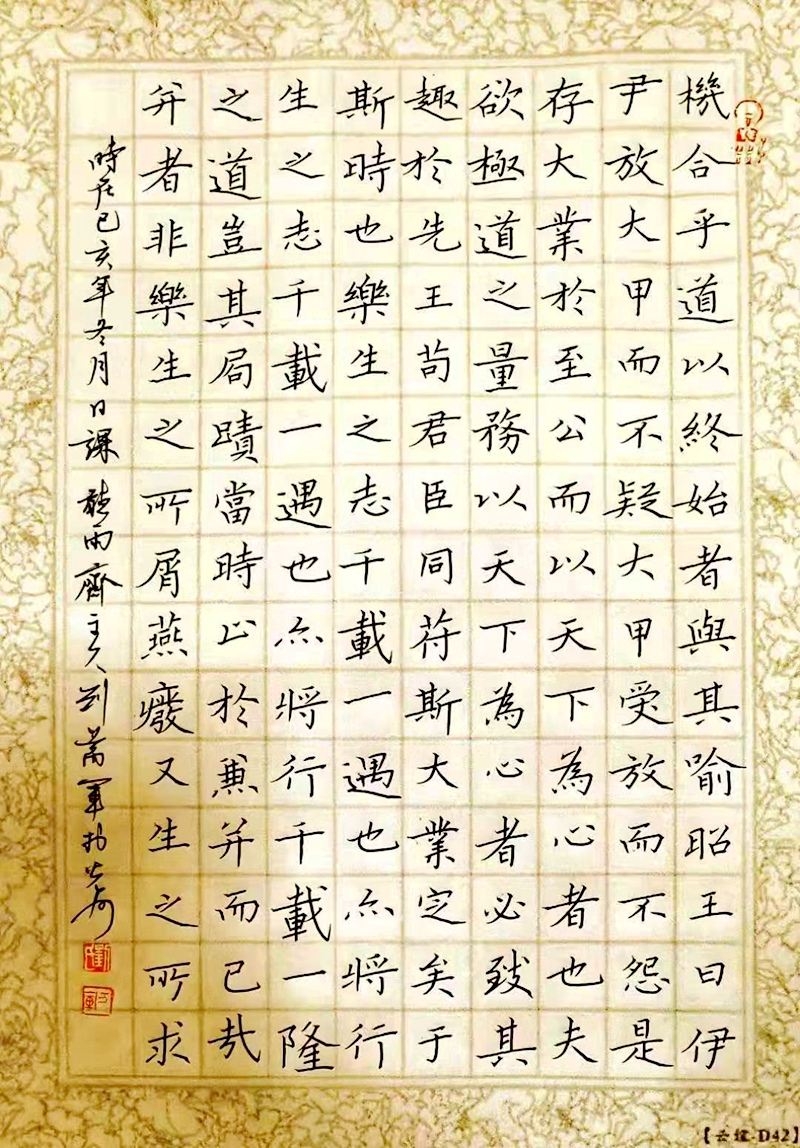 機合乎道以終始者與其喻昭王曰伊
尹放大甲而不疑大甲受放而不怨是
存大業於至公而以天下為心者也夫
欲極道之量務以天下為心者必致其
趣於先王苟君臣同符斯大業定矣于
斯時也樂生之志千載一遇也亦將行
生之志千載一遇也亦將行千載一隆
之道豈其局蹟當時止於兼并而已哉
并者非樂生之所屑燕廢又生之所求
時在己亥年冬月日課 聽雨齋主人
D42